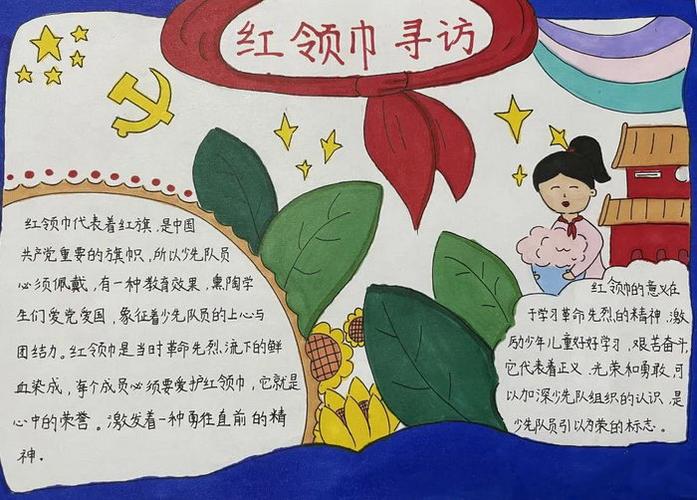 红领巾寻访
红领巾代表着红旗,是中国
共产党重要的旗帜,所以少先队员
必须佩戴,有一种教育效果,熏陶学
生们爱党爱国,象征着少先队员的上心与
团结力。红领巾是当时革命先烈,流下的鲜
血染成,每个成员必须要爱护红领巾,它就是
心中的荣誉。激发着一种勇往直前的精
神.
红领巾的意义在
于学习革命先烈的精神,激
励少年儿童好好学习,艰苦奋斗,
它代表着正义,光荣和勇敢,可
以加深少先队组织的认识,是
少先队员引以为荣的标志。